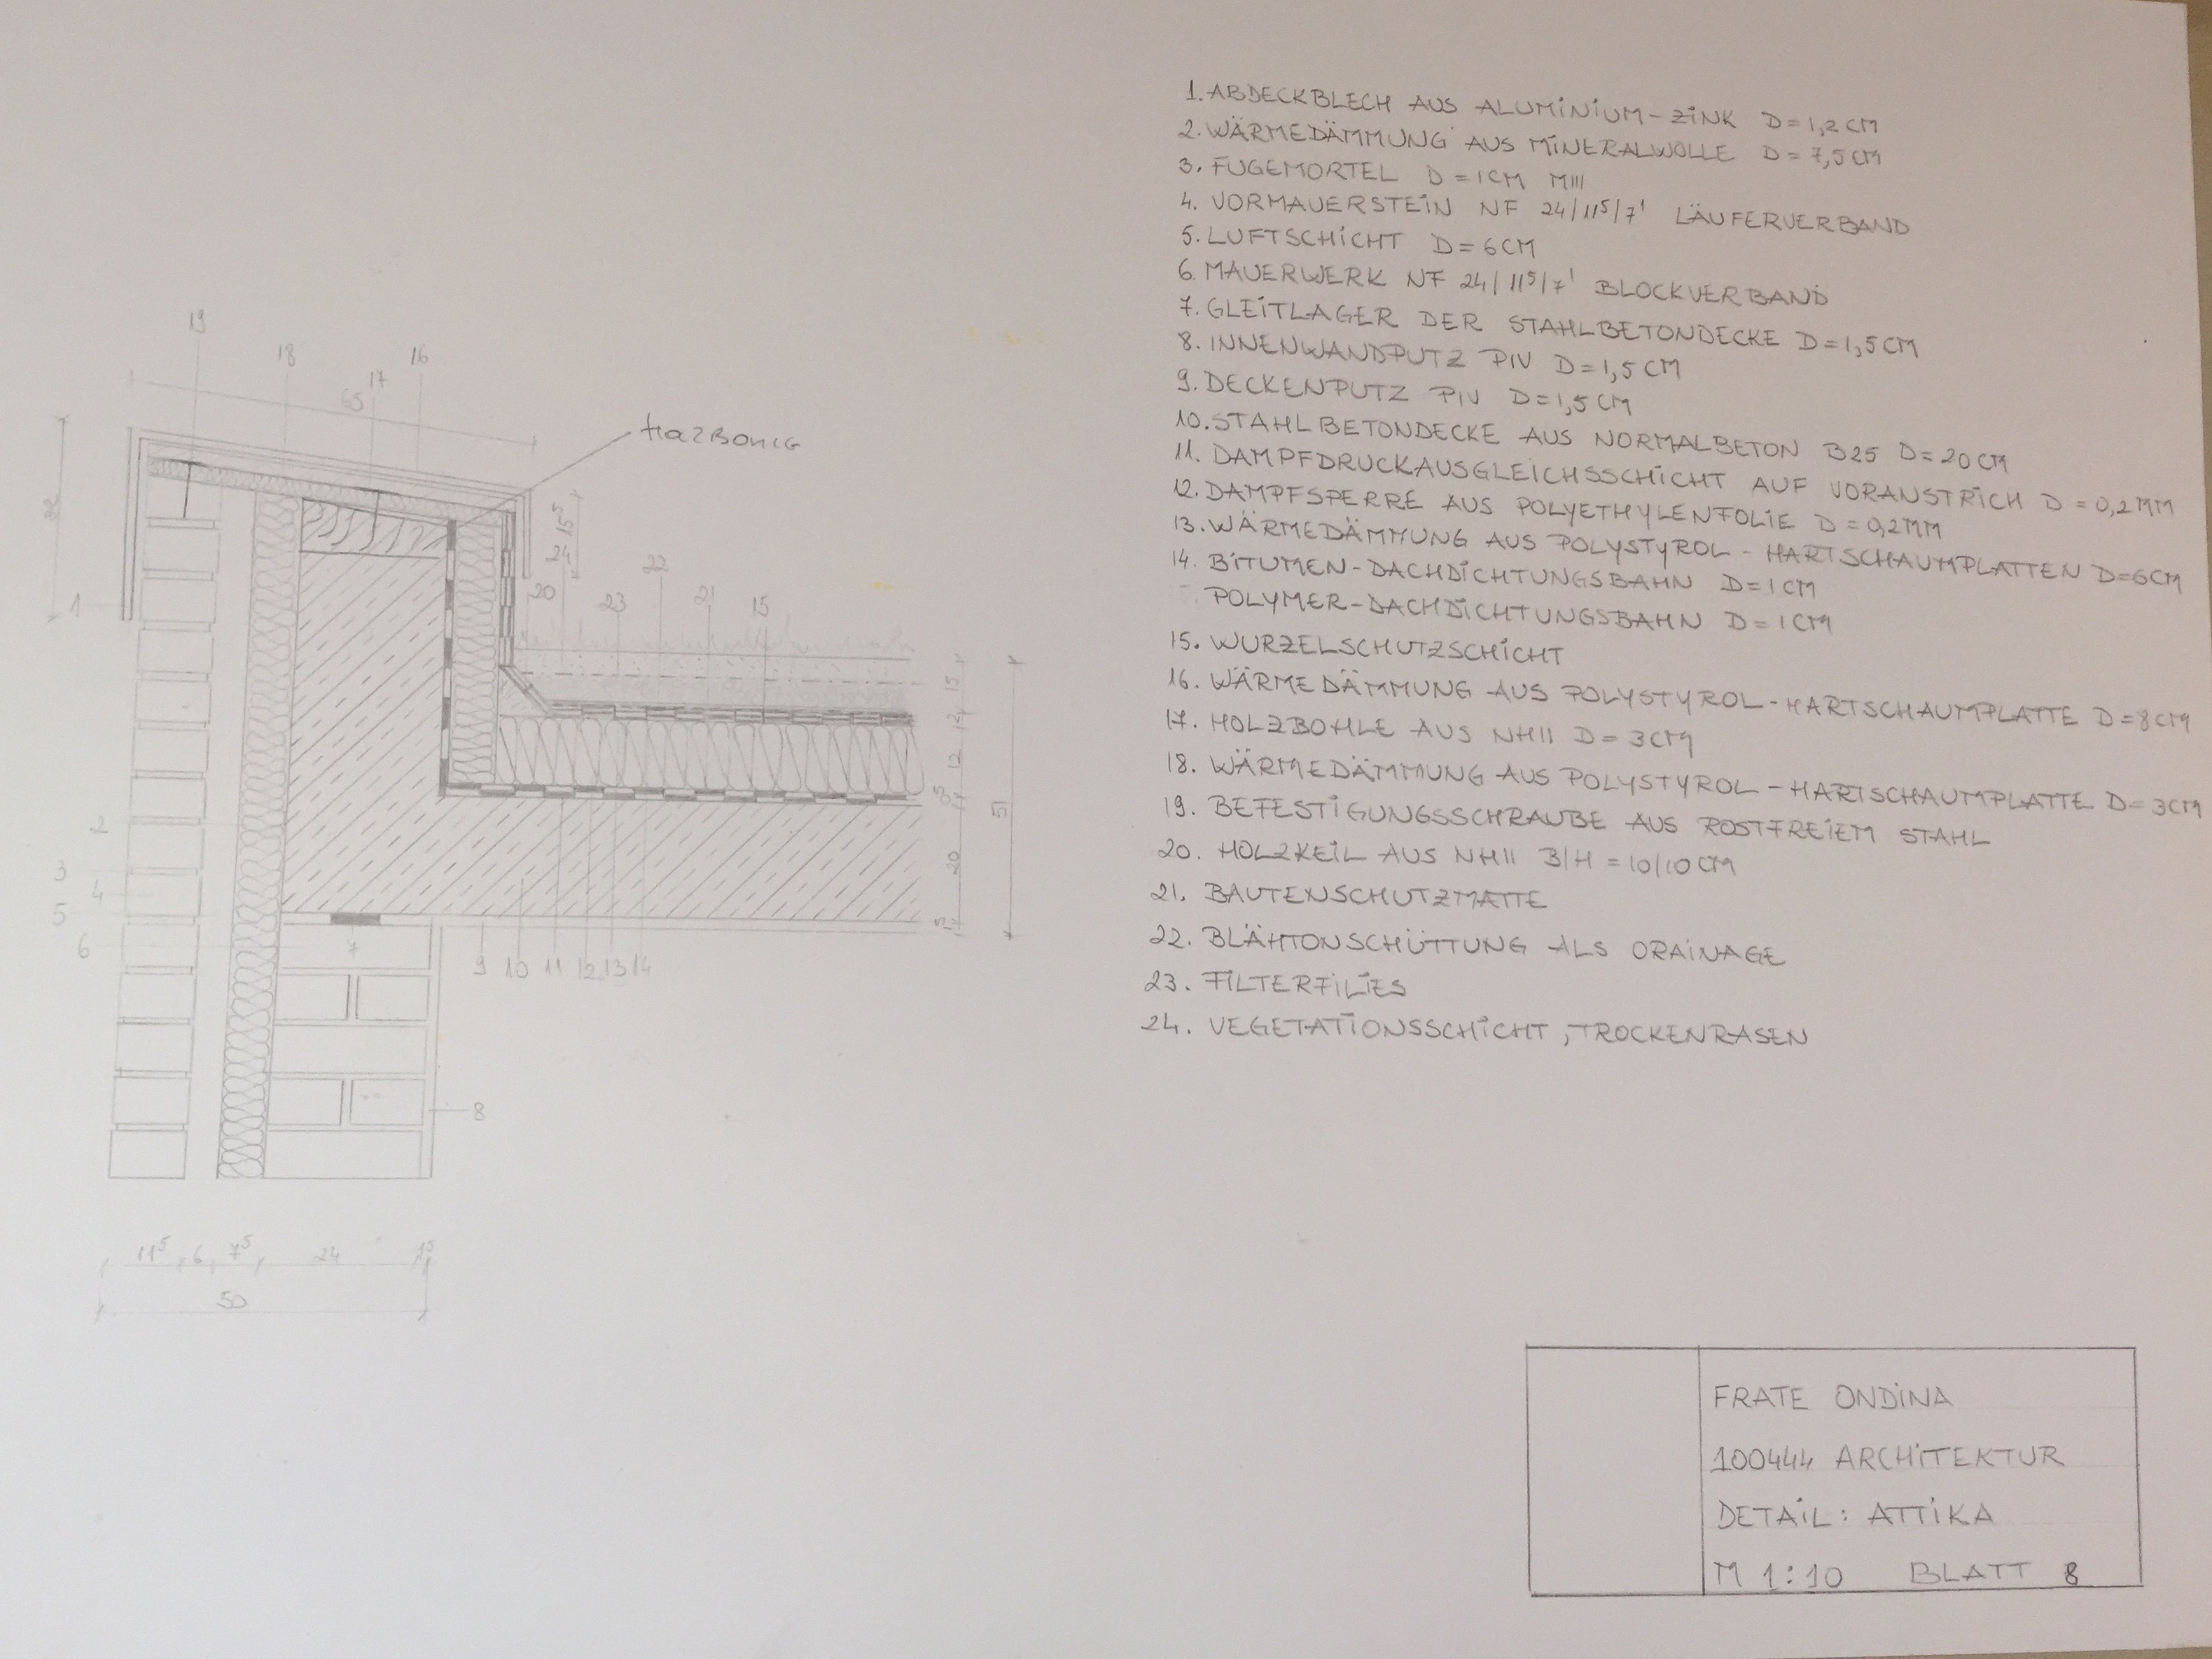 19
18
17
16
65
1
15⁵
24
20
23
22
21
15
15
12
12
5
20
1⁵
51
2
3
4
5
6
7
9 10 11 12 13 14
8
11⁵ 6 7⁵ 24 1⁵
50
1. ABDECKBLECH AUS ALUMINIUM-ZINK D=1,2 CM
2. WÄRMEDÄMMUNG AUS MINERALWOLLE D=7,5 CM
3. FUGEMORTEL D=1CM MIII
4. VORMAUERSTEIN NF 24/11⁵/7¹ LÄUFERVERBAND
5. LUFTSCHICHT D=6CM
6. MAUERWERK NF 24/11⁵/7¹ BLOCKVERBAND
7. GLEITLAGER DER STAHLBETONDECKE D=1,5 CM
8. INNENWANDPUTZ PIV D=1,5 CM
9. DECKENPUTZ PIV D=1,5 CM
10. STAHLBETONDECKE AUS NORMALBETON B25 D=20 CM
11. DAMPFDRUCKAUSGLEICHSSCHICHT AUF VORANSTRICH D=0,2MM
12. DAMPFSPERRE AUS POLYETHYLENFOLIE D=0,2MM
13. WÄRMEDÄMMUNG AUS POLYSTYROL-HARTSCHAUMPLATTEN D=6CM
14. BITUMEN-DACHDICHTUNGSBAHN D=1CM
POLYMER-DACHDICHTUNGSBAHN D=1CM
15. WURZELSCHUTZSCHICHT
16. WÄRMEDÄMMUNG AUS POLYSTYROL-HARTSCHAUMPLATTE D=8CM
17. HOLZBOHLE AUS NHII D=3CM
18. WÄRMEDÄMMUNG AUS POLYSTYROL-HARTSCHAUMPLATTE D=3CM
19. BEFESTIGUNGSSCHRAUBE AUS ROSTFREIEM STAHL
20. HOLZKEIL AUS NHII B/H=10/10CM
21. BAUTENSCHUTZMATTE
22. BLÄHTONSCHÜTTUNG ALS DRAINAGE
23. FILTERFILIES
24. VEGETATIONSSCHICHT, TROCKENRASEN
FRATE ONDINA
100444 ARCHITEKTUR
DETAIL: ATTIKA
M 1:10 BLATT 8